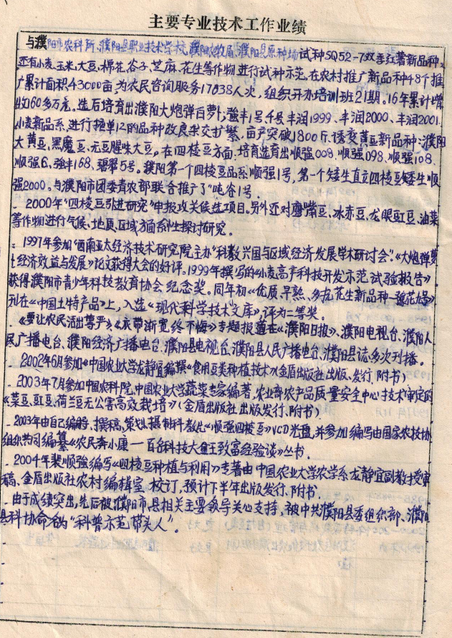 主要专业技术工作业绩
与濮阳市农科所、濮阳县职业技术学校、濮阳农局、濮阳县原种场试种SQ52-7双季红薯新品种。
还有小麦、玉米、大豆、棉花、谷子、芝麻、花生等作物进行试种示范,在农村推广新品种48个,推
广累计面积43000亩,为农民咨询服务17038人次,组织开办培训班21期,16年累计增
收60多万元,选后培育出濮阳大炮弹萝卜,强丰1号、千层、丰润1999、丰润2000、丰润2001
小麦新品系,进行稳单12的品种改良杂交扩繁,亩产突破1800斤,诱变黄豆新品种:濮阳
大黄豆、黑魔豆、无豆腥味大豆。在四棱豆方面:培育选育出顺强008、顺强098、顺强108、
顺强6、强丰168、碧翠5号。濮阳第一个四棱豆品系顺强1号,第一个矮生直立四棱豆矮生顺
强2000,与濮阳市团委青农部联合推广了"吨谷1号。
2000年"四棱豆引进研究"申报攻关候选项目,另外还对藜嘴豆、冰赤豆、龙眼豇豆、油菜
等作物进行气候、地质、区域多因素性探讨研究。
1997年参加"西南亚太经济技术研究院主办"科教兴国与区域经济发展学术研讨会"。《大炮弹萝
卜经济效益与发展》论文获得大会的好评,1999年撰写的《小麦高产科技开发示范试验报告》
获得濮阳市青少年科技教育协会纪念奖,同年初《优质、早熟、多抗花生新品种—莲花姑》
刊在《中国土特产品》上,入选《现代科学技术文库》,评为二等奖。
《要让农民活出尊严》《衣带渐宽终不悔》专题报道在《濮阳日报》、濮阳电视台、濮阳人
民广播电台、濮阳经济广播电台、濮阳县电视台、濮阳县人民广播电台、濮阳县志多次刊播。
2002年6月参加《中国农业大学龙静宜编纂《食用豆类种植技术》(金盾出版社出版、发行、附书)
2003年7月参加中国农科院、中国农业大学蔬菜专家编著,农业部农产品质量安全中心技术审定的
《菜豆、豇豆、荷兰豆无公害高效栽培》(金盾出版社出版发行、附书)
2003年由自己编排、撰稿、策划、摄制科教片《顺强四棱豆》VCD光盘,并参加编写由国家农技协
组织共同编纂《农民奔小康一百例科技大盘王致富经验谈》丛书。
2004年裴顺强编写《四棱豆种植与利用》专著由中国农业大学农学系龙静宜副教授审
稿,金盾出版社农村编辑室校订,预计下半年出版发行、附书。
由于成绩突出,先后被濮阳市、县相关主要领导关心支持,被中共濮阳县委组织部、濮阳
县科协命名为"科普示范带头人"。